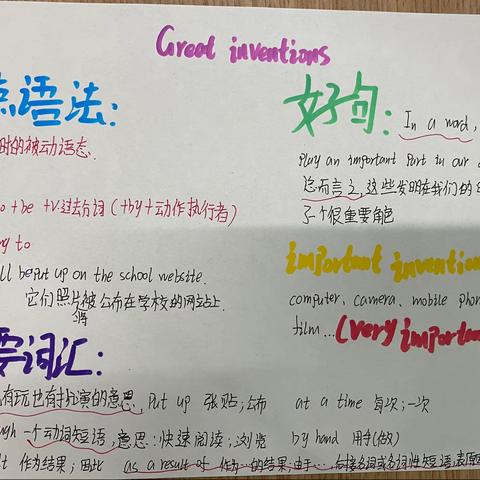 Great inventions
语法:
时的被动语态.
+be +v过去分词 (+by+动作执行者)
to
put up on the school website.
它们照片将被公布在学校的网站上
词汇:
有玩也有扮演的意思, put up 张贴;公布 at a time 每次;一次
一个动词短语,意思:快速阅读;浏览 by hand 用手(做)
作为结果;因此 as a result of 作为…的结果;由于…
好句:
In a word,
play an important part in our
总而言之,这些发明在我们的
了一个很重要角色
important
computer、camera、mobile
film...(very